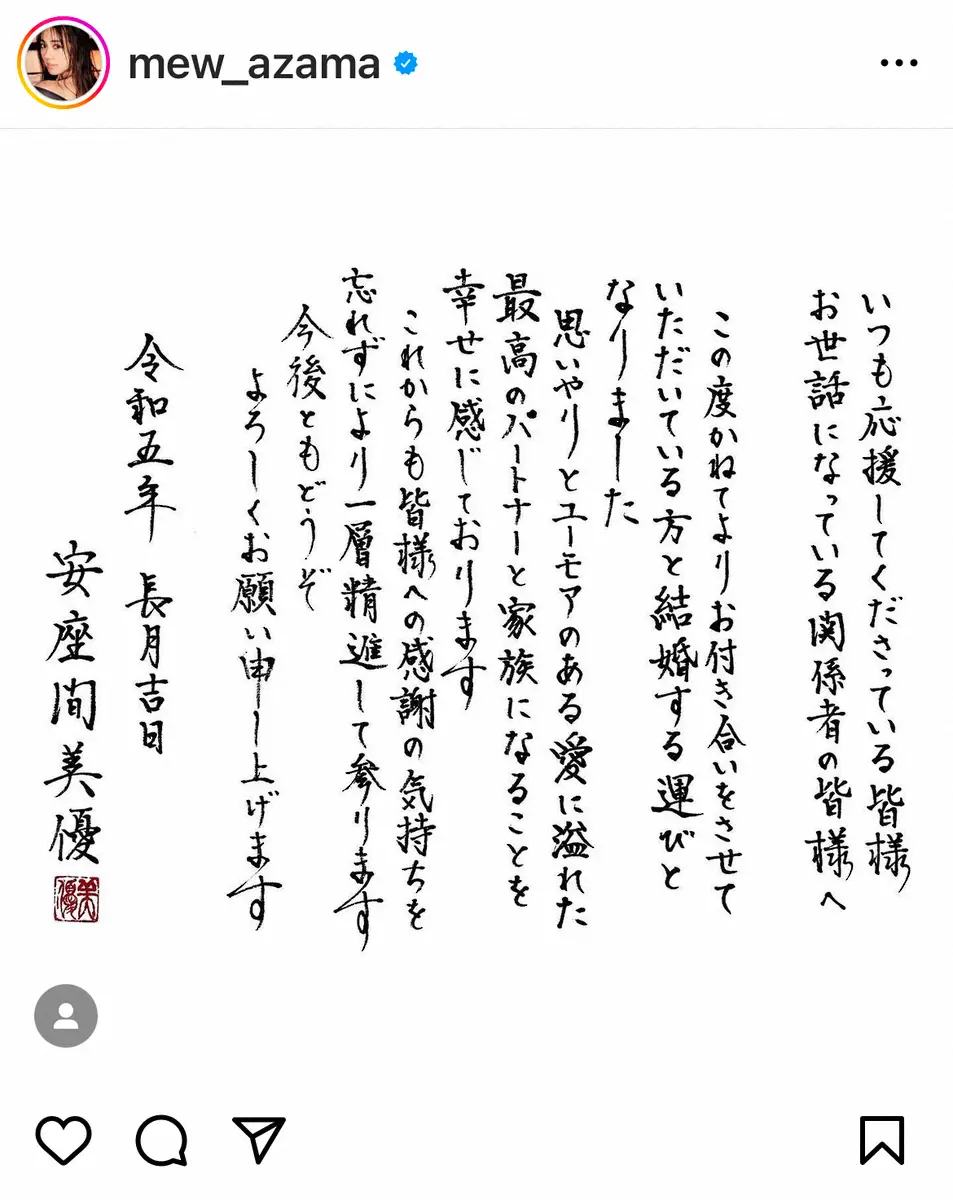 mew_azama
いつも応援してくださっている皆様
お世話になっている関係者の皆様へ
この度かねてよりお付き合いをさせて
いただいている方と結婚する運びと
なりました
思いやりとユーモアのある愛に溢れた
最高のパートナーと家族になることを
幸せに感じております
これからも皆様への感謝の気持ちを
忘れずにより一層精進して参ります
今後ともどうぞ
よろしくお願い申し上げます
令和五年 長月吉日
安座間美優
美優